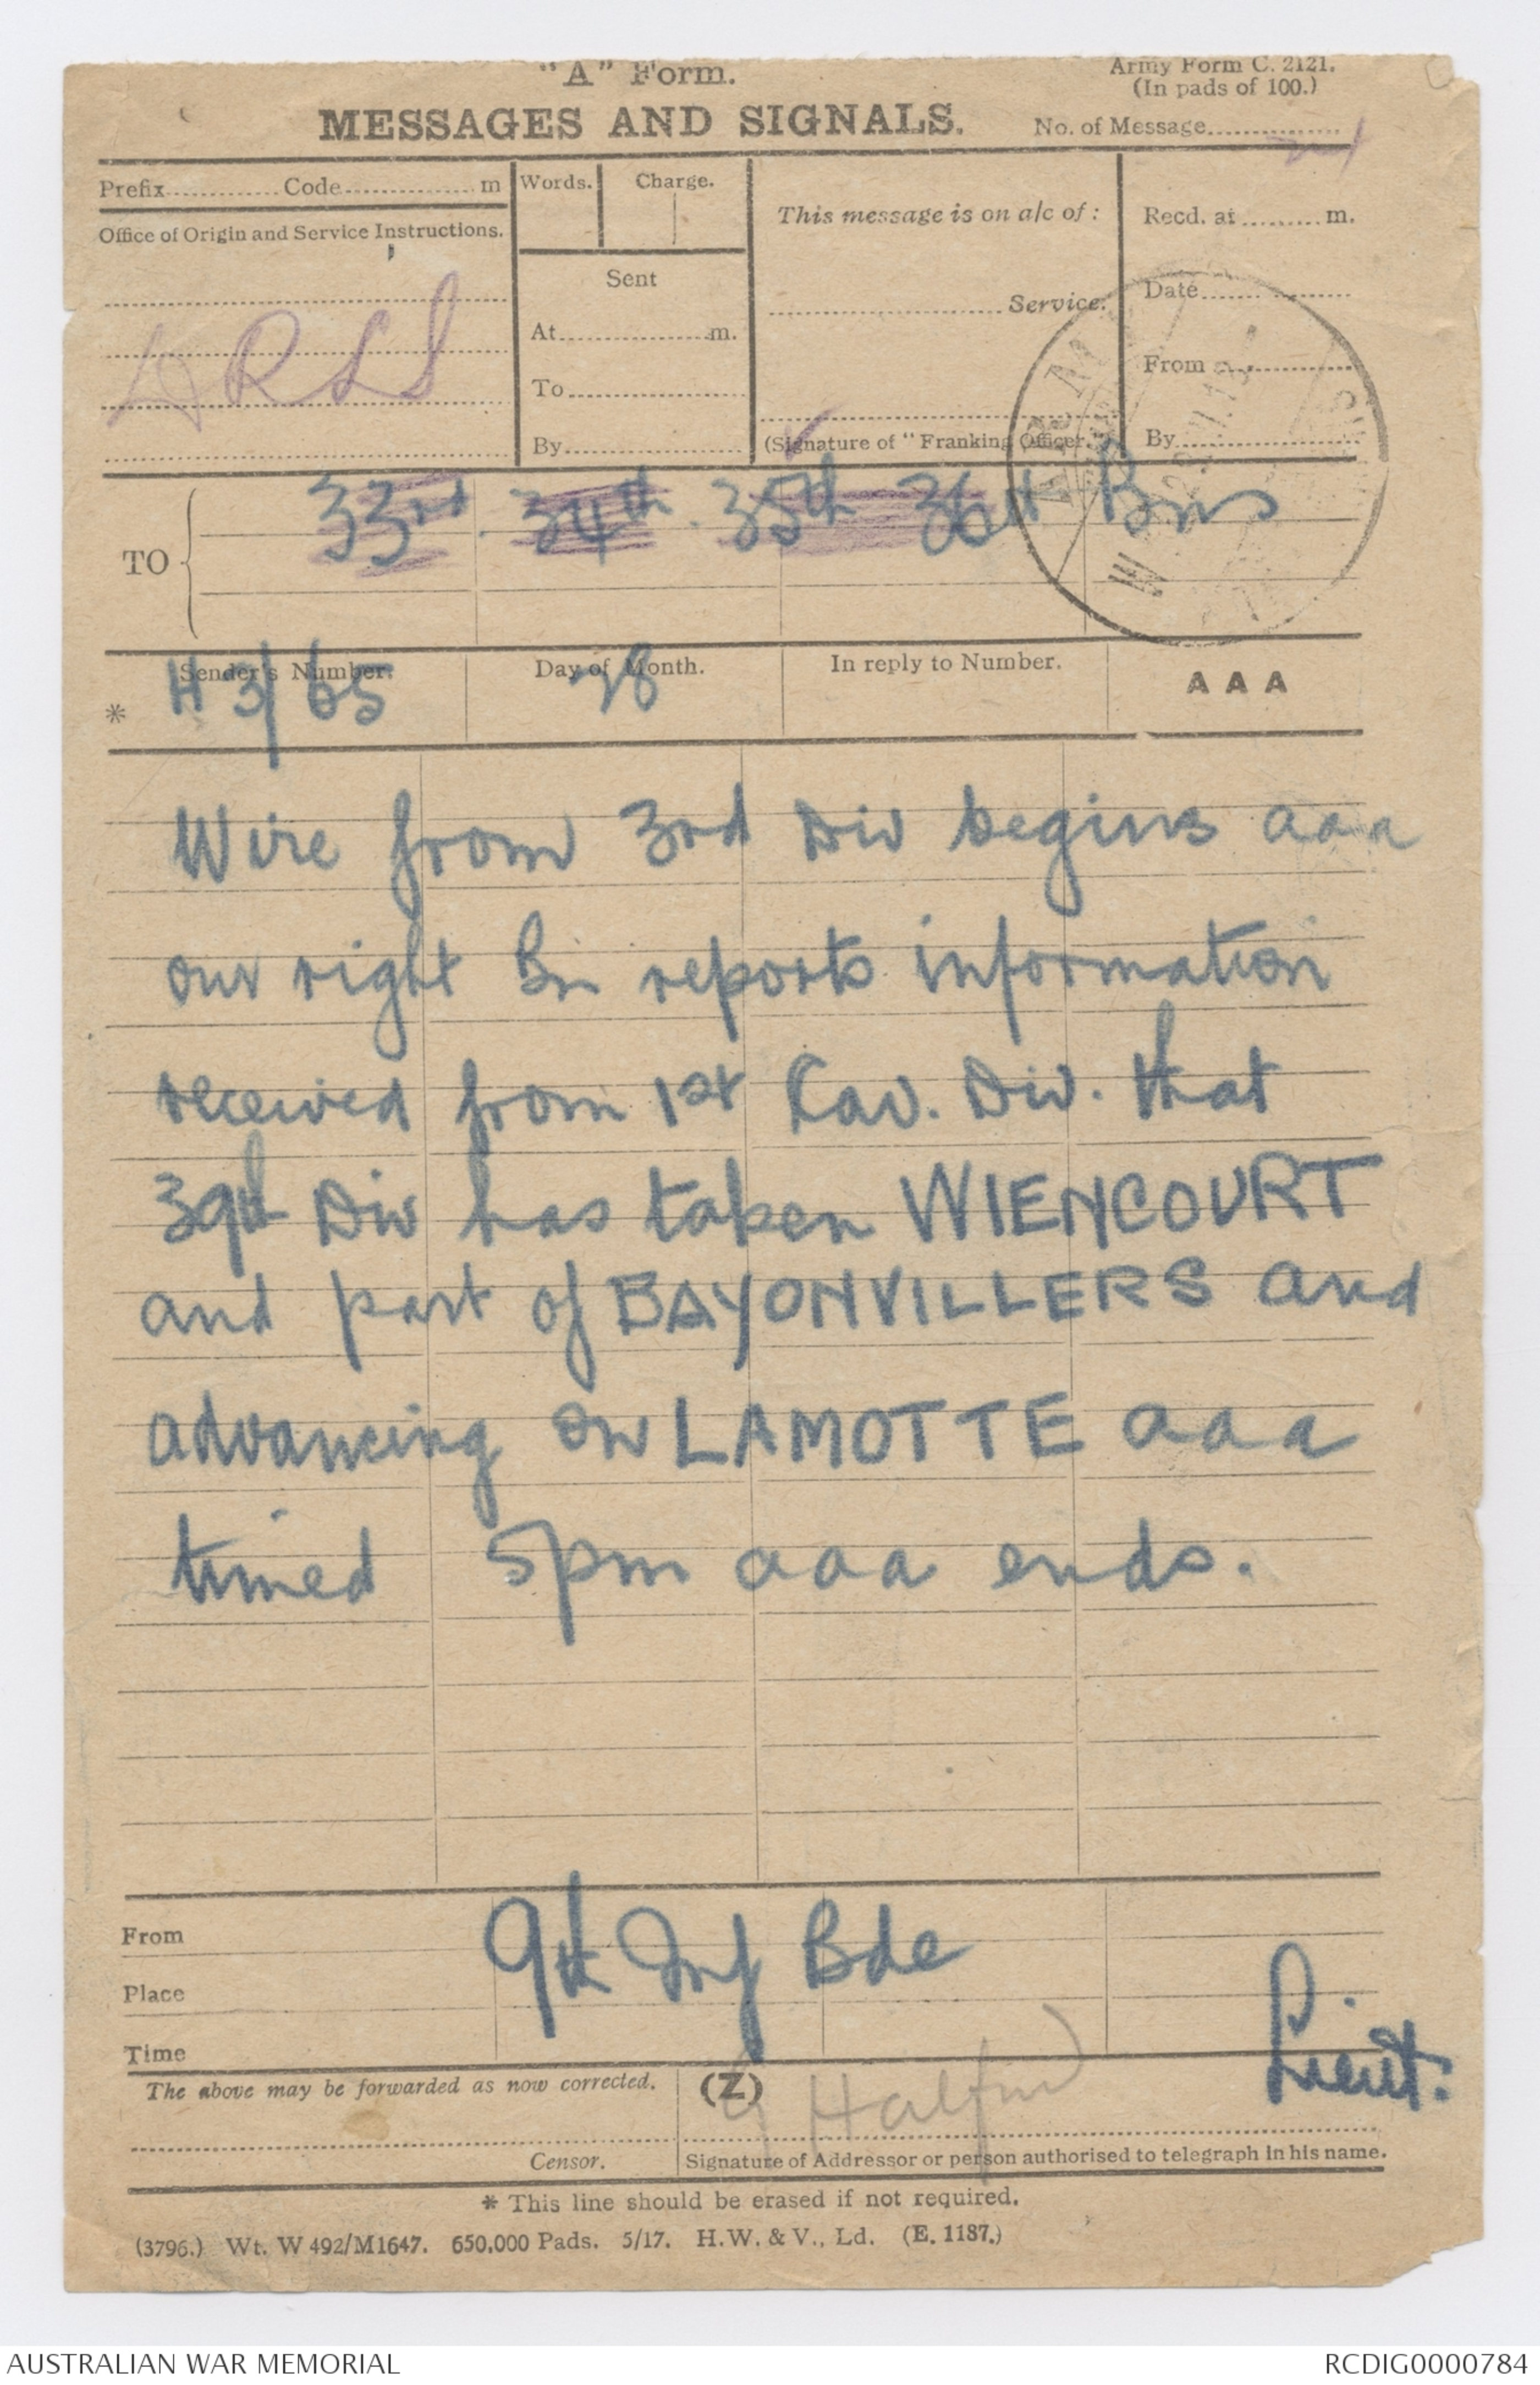 "A" Form.
Army Form C. 2121.
(In pads of 100.)
MESSAGES AND SIGNALS.
No. of Message................
Prefix.............Code................m
Words.
Charge.
This message is on a/c of :
Recd. at .........m.
Office of Origin and Service Instructions.
Sent
Service.
Date.................
DRLS
At.................m.
From .................
To.................
By.................
(Signature of "Franking Officer.")
By.................
TO
33rd. 34th. 35th 36th Bns
Sender's Number.
Day of Month.
In reply to Number.
AAA
* H 3/65
28
Wire from 3rd Div begins aaa
our right Bn reports information
received from 1st Cav. Div. that
39th Div has taken WIENCOURT
and part of BAYONVILLERS and
advancing on LAMOTTE aaa
timed 5pm aaa ends.
From
9th Inf Bde
Place
Time
Lieut.
The above may be forwarded as now corrected.
(Z)
G Halford
Censor.
Signature of Addressor or person authorised to telegraph in his name.
* This line should be erased if not required.
(3796.) Wt. W 492/M1647. 650,000 Pads. 5/17. H.W. & V., Ld. (E. 1187.)
AUSTRALIAN WAR MEMORIAL
RCDIG0000784